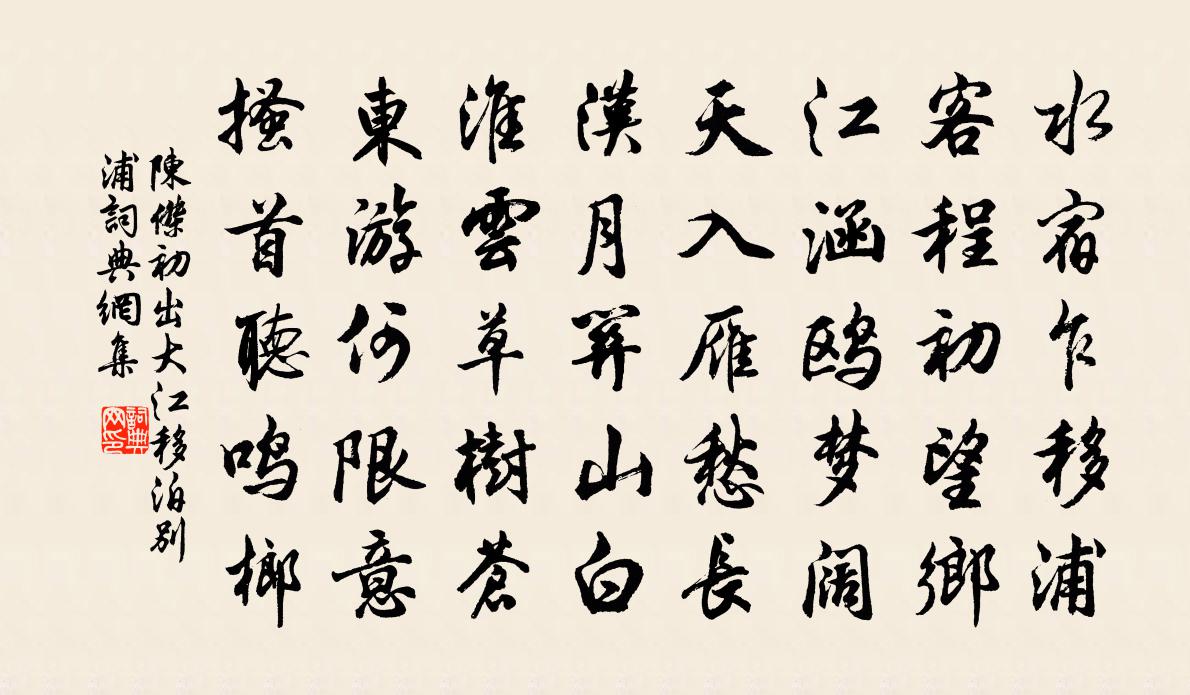 水宿乍移浦
客程初望鄉
江涵鸥梦阔
天入雁愁長
漢月開山白
淮雲草樹蒼
東游何限意
搔首聽鸣榔
陳傑初出大江移泊別
浦詞典網集
詞典网印